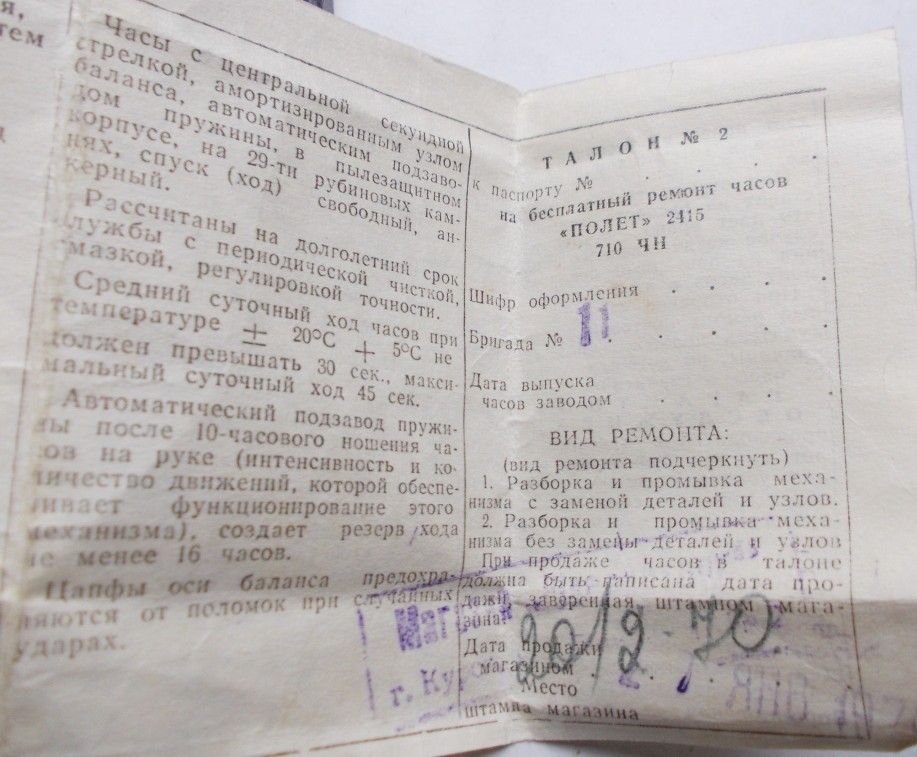 я,
тем
Часы с центральной секундной
стрелкой, амортизированным узлом
баланса, автоматическим подзаво-
дом пружины, в пылезащитном
корпусе, на 29-ти рубиновых кам-
нях, спуск (ход) свободный, ан-
керный.
Рассчитаны на долголетний срок
службы с периодической чисткой,
смазкой, регулировкой точности.
Средний суточный ход часов при
температуре ± 20°С + 5°С не
должен превышать 30 сек., макси-
мальный суточный ход 45 сек.
Автоматический подзавод пружи-
ны после 10-часового ношения ча-
сов на руке (интенсивность и ко-
личество движений, которой обеспе-
чивает функционирование этого
механизма), создает резерв хода
не менее 16 часов.
Цапфы оси баланса предохра-
няются от поломок при случайных
ударах.
ТАЛОН № 2
к паспорту № . . . .
на бесплатный ремонт часов
«ПОЛЕТ» 2415
710 ЧН
Шифр оформления . . . .
Бригада № 11 . . . .
Дата выпуска
часов заводом . . . .
ВИД РЕМОНТА:
(вид ремонта подчеркнуть)
1. Разборка и промывка меха-
низма с заменой деталей и узлов.
2. Разборка и промывка меха-
низма без замены деталей и узлов
При продаже часов в талоне
должна быть написана дата про-
дажи, заверенная штампом мага-
зина.
Дата продажи
магазином 20/2-70
Место
штампа магазина
Маг
г. Кур